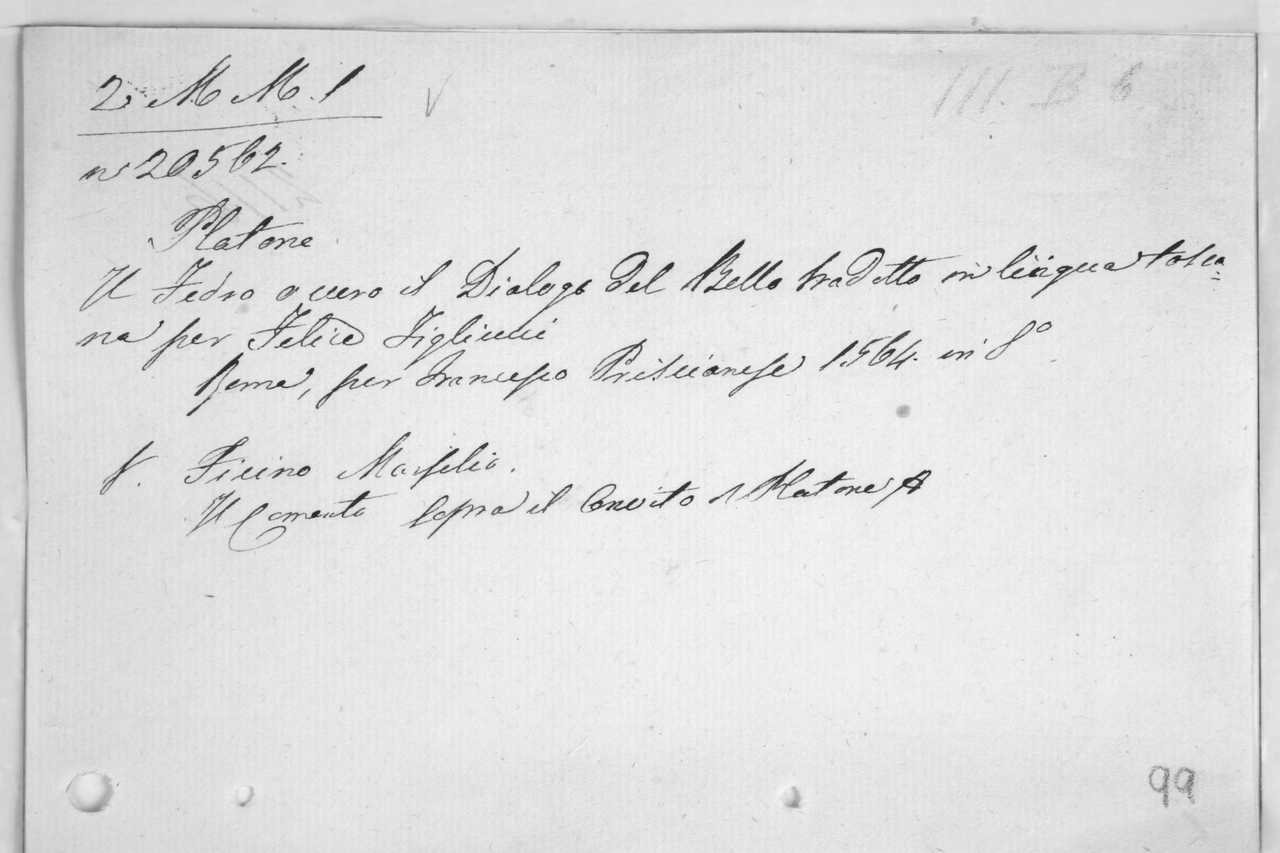 2. M. M. 1
III. B 6
nº 20562.
Platone
Il Fedro o vero il Dialogo del Bello tradotto in lingua tosca=
na per Felice Figliucci
Roma, per Francesco Priscianese 1564. in 8º
V. Ficino Marsilio.
Il Comento sopra il Convito di Platone
99